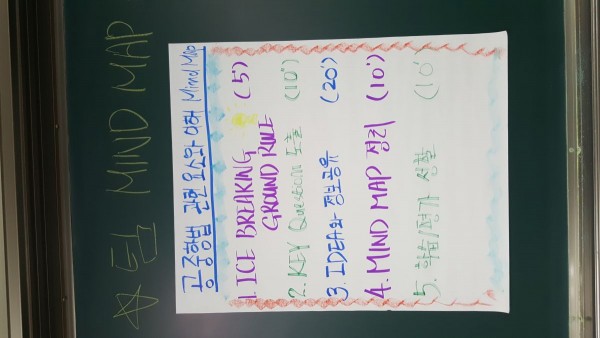 ☆ 팀 MIND MAP
공중항법 관련 요소와 이해 Mind Map
1. ICE BREAKING, (5')
GROUND RULE
2. KEY Question 도출 (10')
3. IDEA와 정보공유 (20')
4. MIND MAP 정리 (10')
5. 학습/평가 성찰 (10'